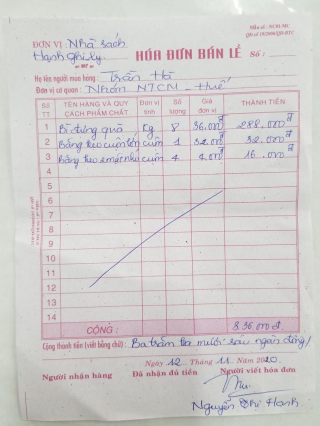 Mẫu số:
ĐƠN VỊ: Nhà sách
HÓA ĐƠN BÁN LẺ Số:
Họ tên người mua hàng: Trần Hà
Đơn vị cơ quan: Nhóm NTCM - Huế
Số TT TÊN HÀNG VÀ QUY CÁCH PHẨM CHẤT Đơn vị tính Số lượng Giá đơn vị THÀNH TIỀN
1 Bì đựng quà Kg 8 36.000đ 288.000đ
2 Băng keo cuộn 1 32.000đ 32.000đ
3 Băng keo cuộn 4 4.000đ 16.000đ
4
5
6
7
8
9
10
11
12
13
14
CỘNG: 336.000đ
Cộng thành tiền (viết bằng chữ): Ba trăm ba mươi sáu ngàn đồng
Ngày 12 Tháng 11 năm 2020
Người nhận hàng Đã nhận đủ tiền Người viết hóa đơn
Nguyễn Thị Hạnh